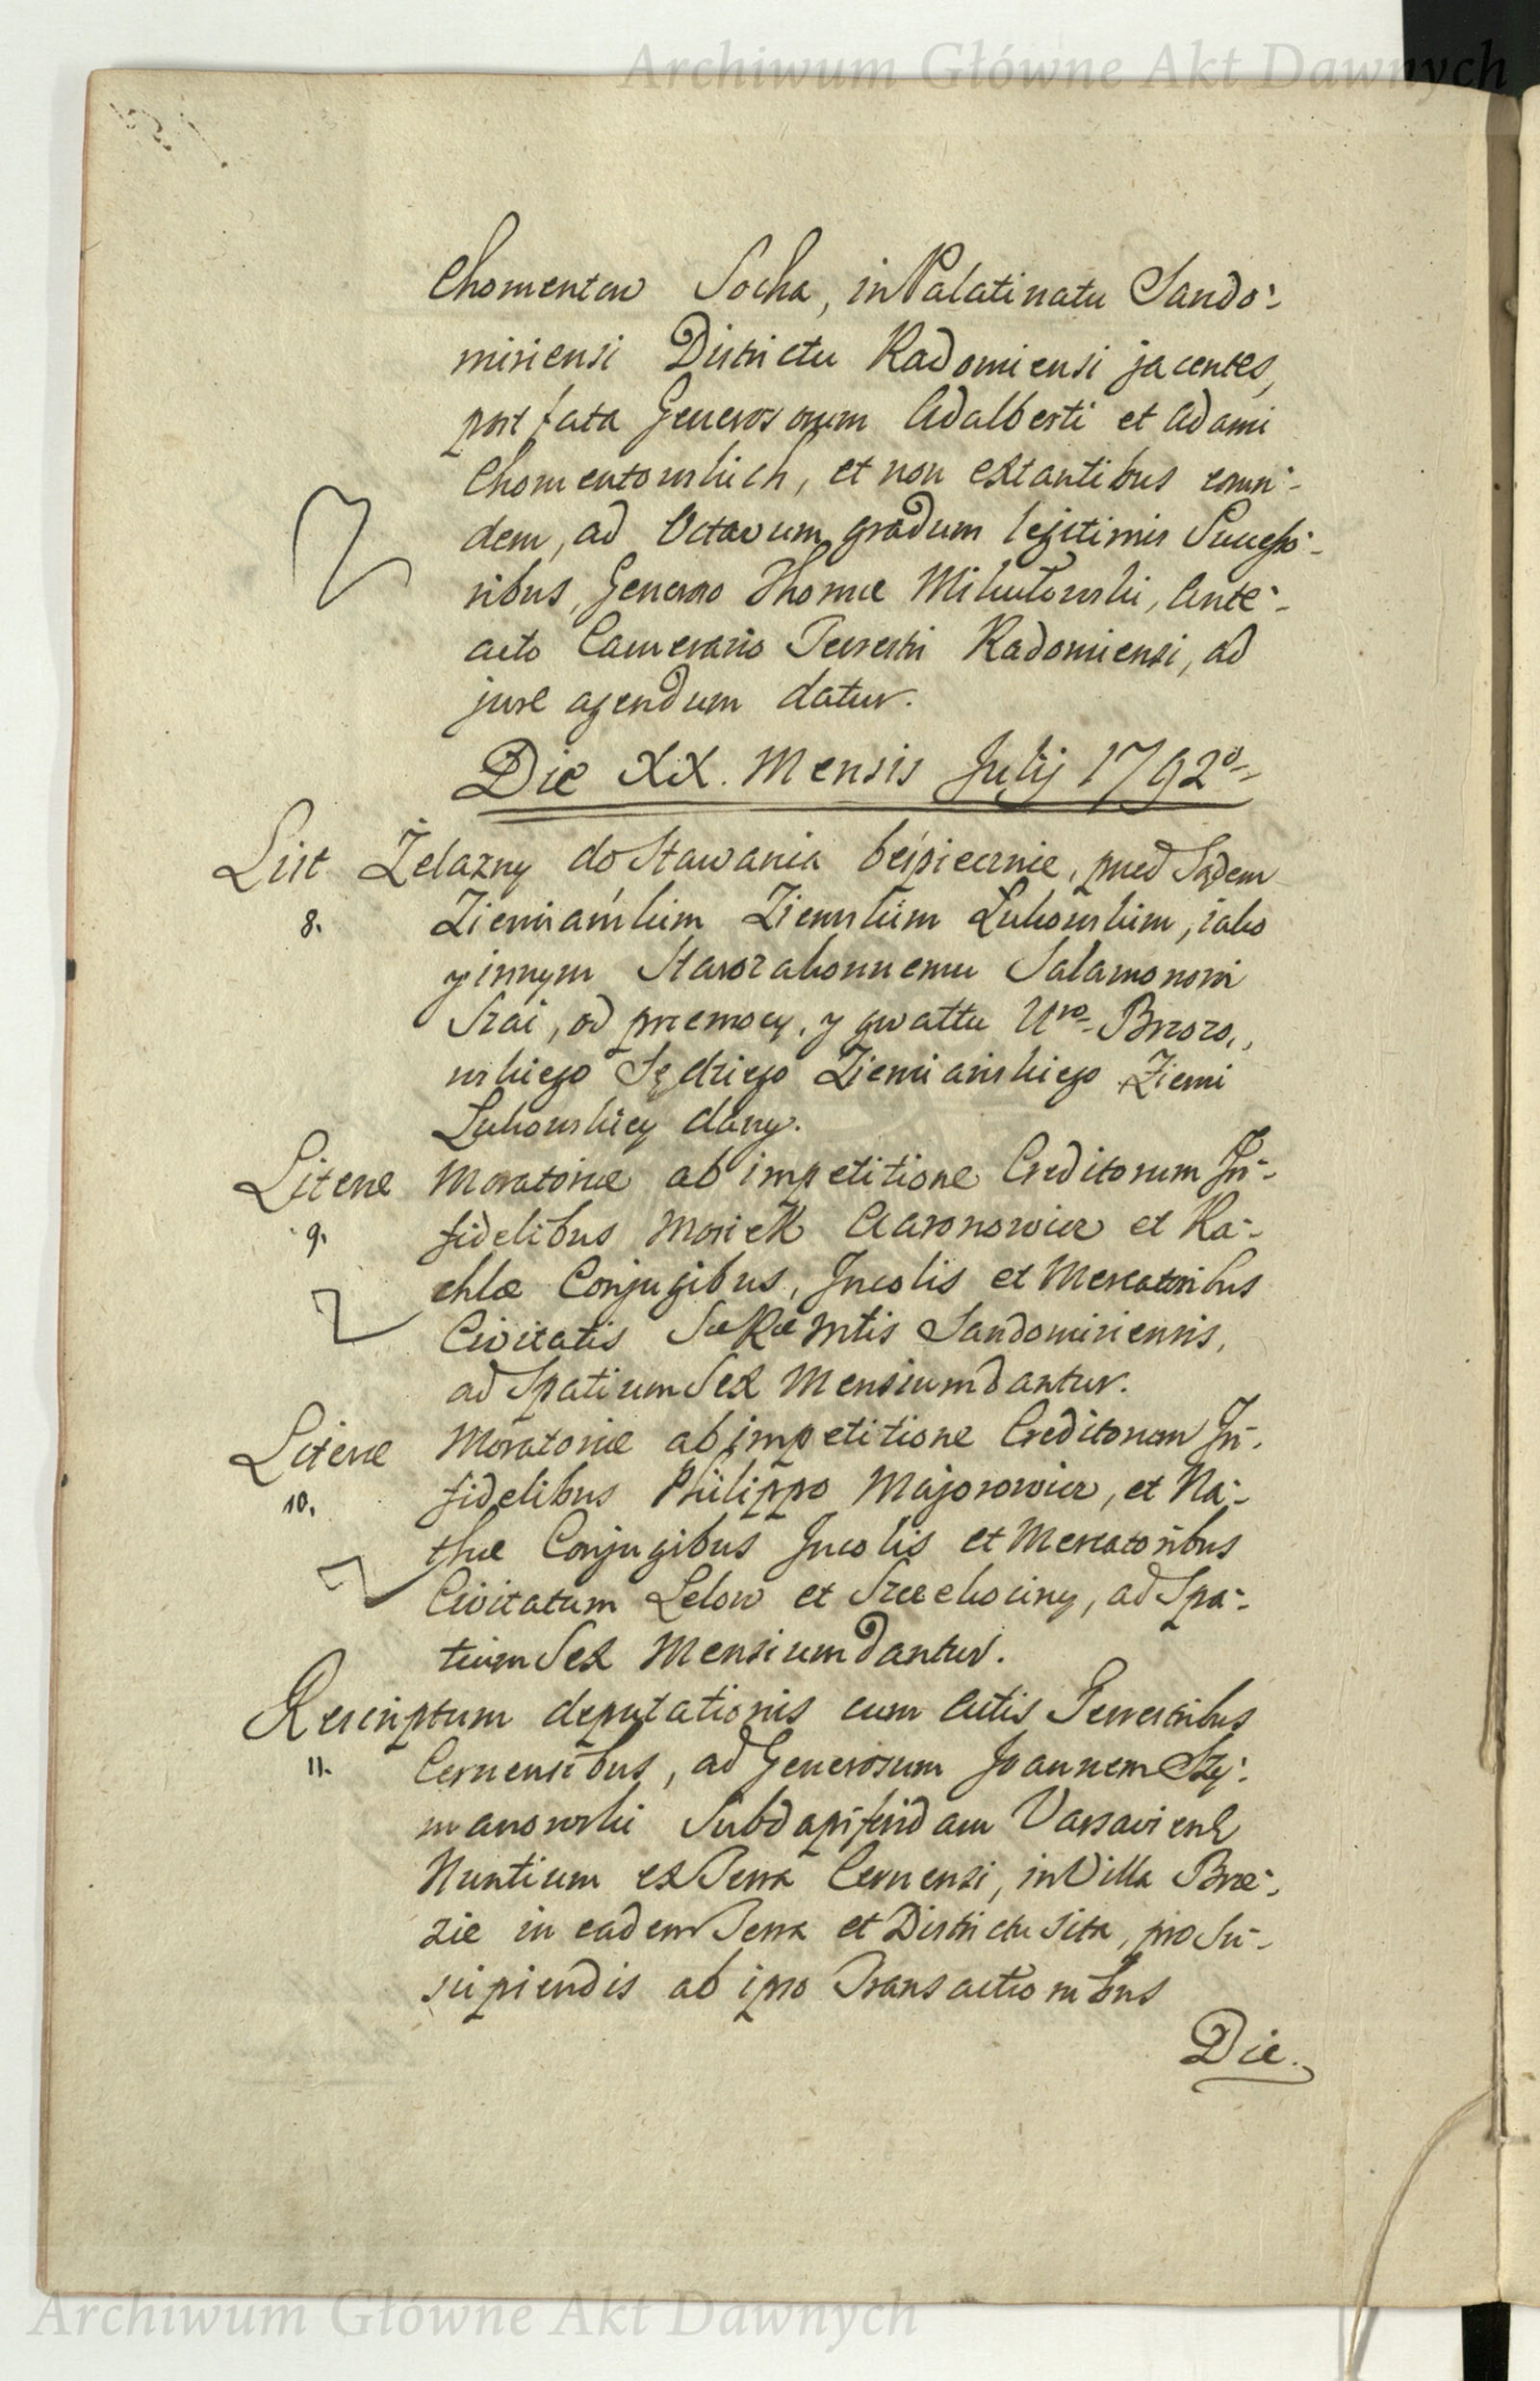 Archiwum Główne Akt Dawnych
Chomentow Socha, in Palatinatu Sando-
miriensi Districtu Radomiensi jacentes,
post fata Generosorum Adalberti et Adami
Chomentowskich, et non extantibus eorun-
dem, ad Octavum gradum legitimis Successo-
ribus, Generoso Thomæ Mikułowski, Ante-
acto Camerario Terrestri Radomiensi, ad
jure agendum datur.
Die XX. Mensis Julij 1792o
List Żelazny do stawania beśpiecznie, przed Sądem
8. Ziemiańskim Ziemskim Łukowskim, jako
y innym Starozakonnemu Salamonowi
Szai, od przemocy, y gwałtu Uro Brzozo,,
wskiego Sędziego Ziemiańskiego Ziemi
Łukowskiey dany.
Literæ Moratoriæ ab impetitione Creditorum In-
9. fidelibus Moriek Aaronowicz et Ra-
chlæ Conjugibus, Incolis et Mercatoribus
Civitatis SæRæMtis Sandomiriensis,
ad Spatium Sex Mensium dantur.
Literæ Moratoriæ ab impetitione Creditorum In-
10. fidelibus Philippo Majorowicz, et Na-
thæ Conjugibus Incolis et Mercatoribus
Civitatum Lelow et Szczekociny, ad Spa-
tium Sex Mensium dantur.
Rescriptum deputationis cum Actis Terrestribus
11. Cernensibus, ad Generosum Joannem Szy-
manowski Subdapiferidam Varsaviens
Nuntium ex Terra Cernensi, in Villa Brze-
zie in eadem Terra et Districtu sita, pro Su-
scipiendis ab ipso Transactionibus
Die.
Archiwum Główne Akt Dawnych